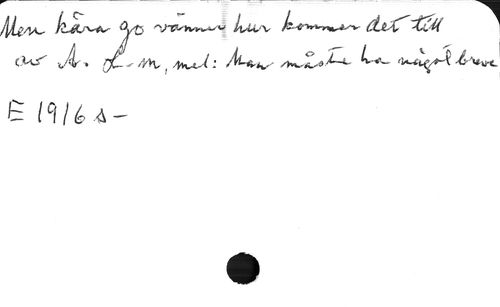 Men kära go vänner hur kommer det till
av A. L-m, mel: Man måste ha något breve
E 1916 s-